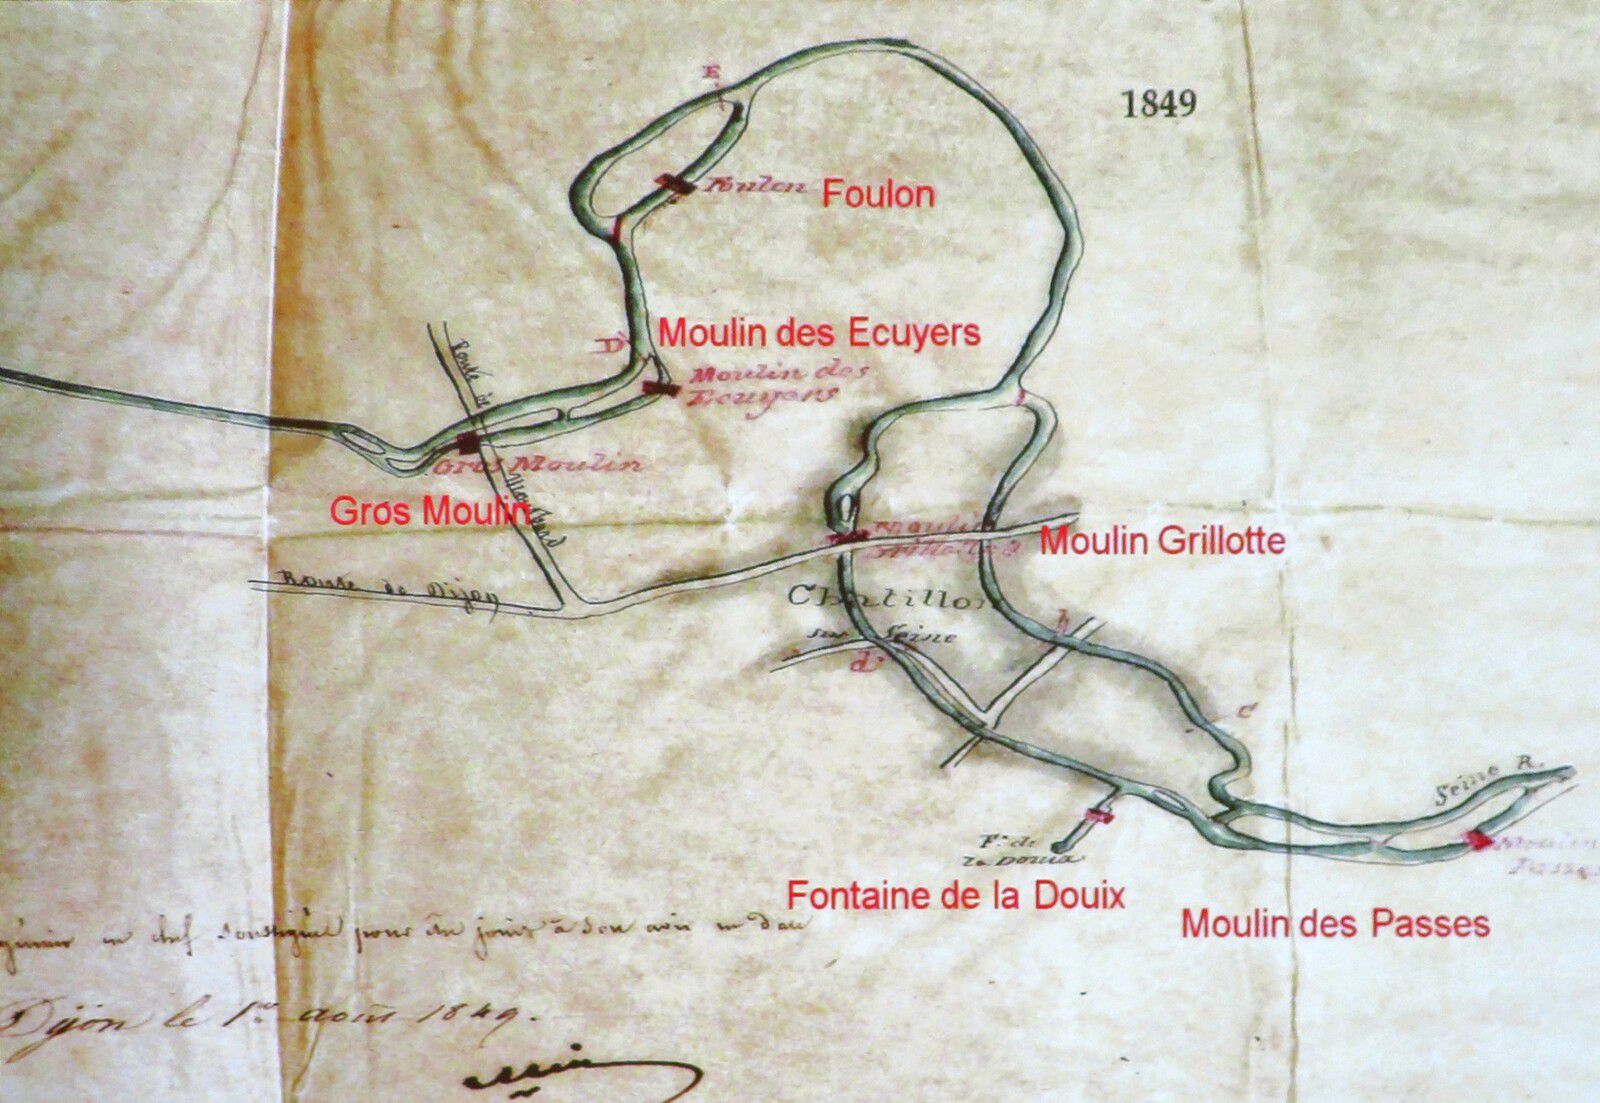 E
1849
Foulon Foulon
Moulin des Ecuyers
D
Moulin des
Ecuyers
Route de
Montbard
Gros Moulin
Gros Moulin
Moulin
Grillotte
Moulin Grillotte
Route de Dijon
Chatillon
sur Seine
h
d
C
Seine R.
F.ne de
la Douia
Moulin
Passes
Fontaine de la Douix
Moulin des Passes
en chef soussigné pour être joint à son avis
Dijon le 1er août 1849.